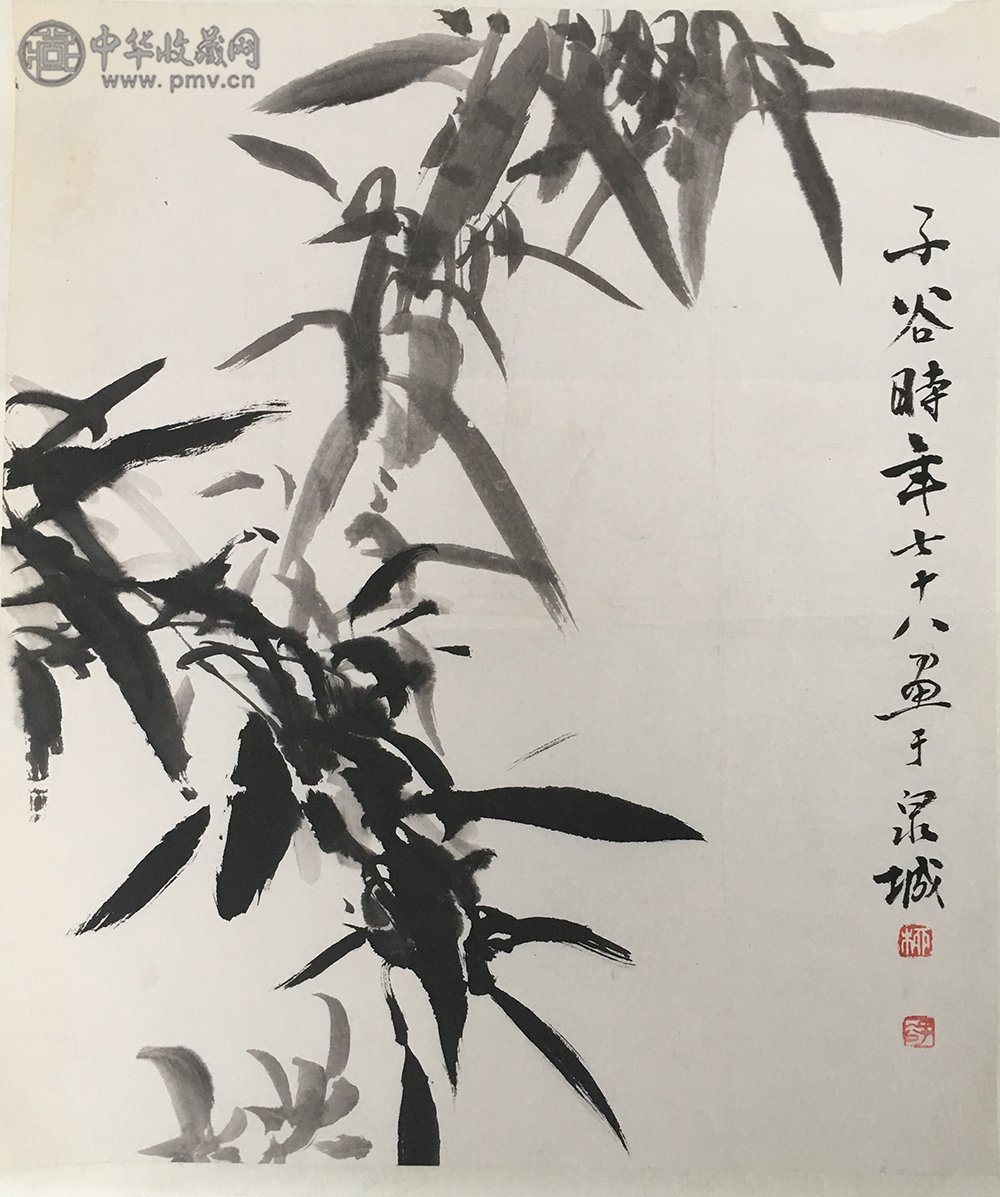 中华收藏网
www.pmv.cn
子谷時年七十八画于泉城
柳